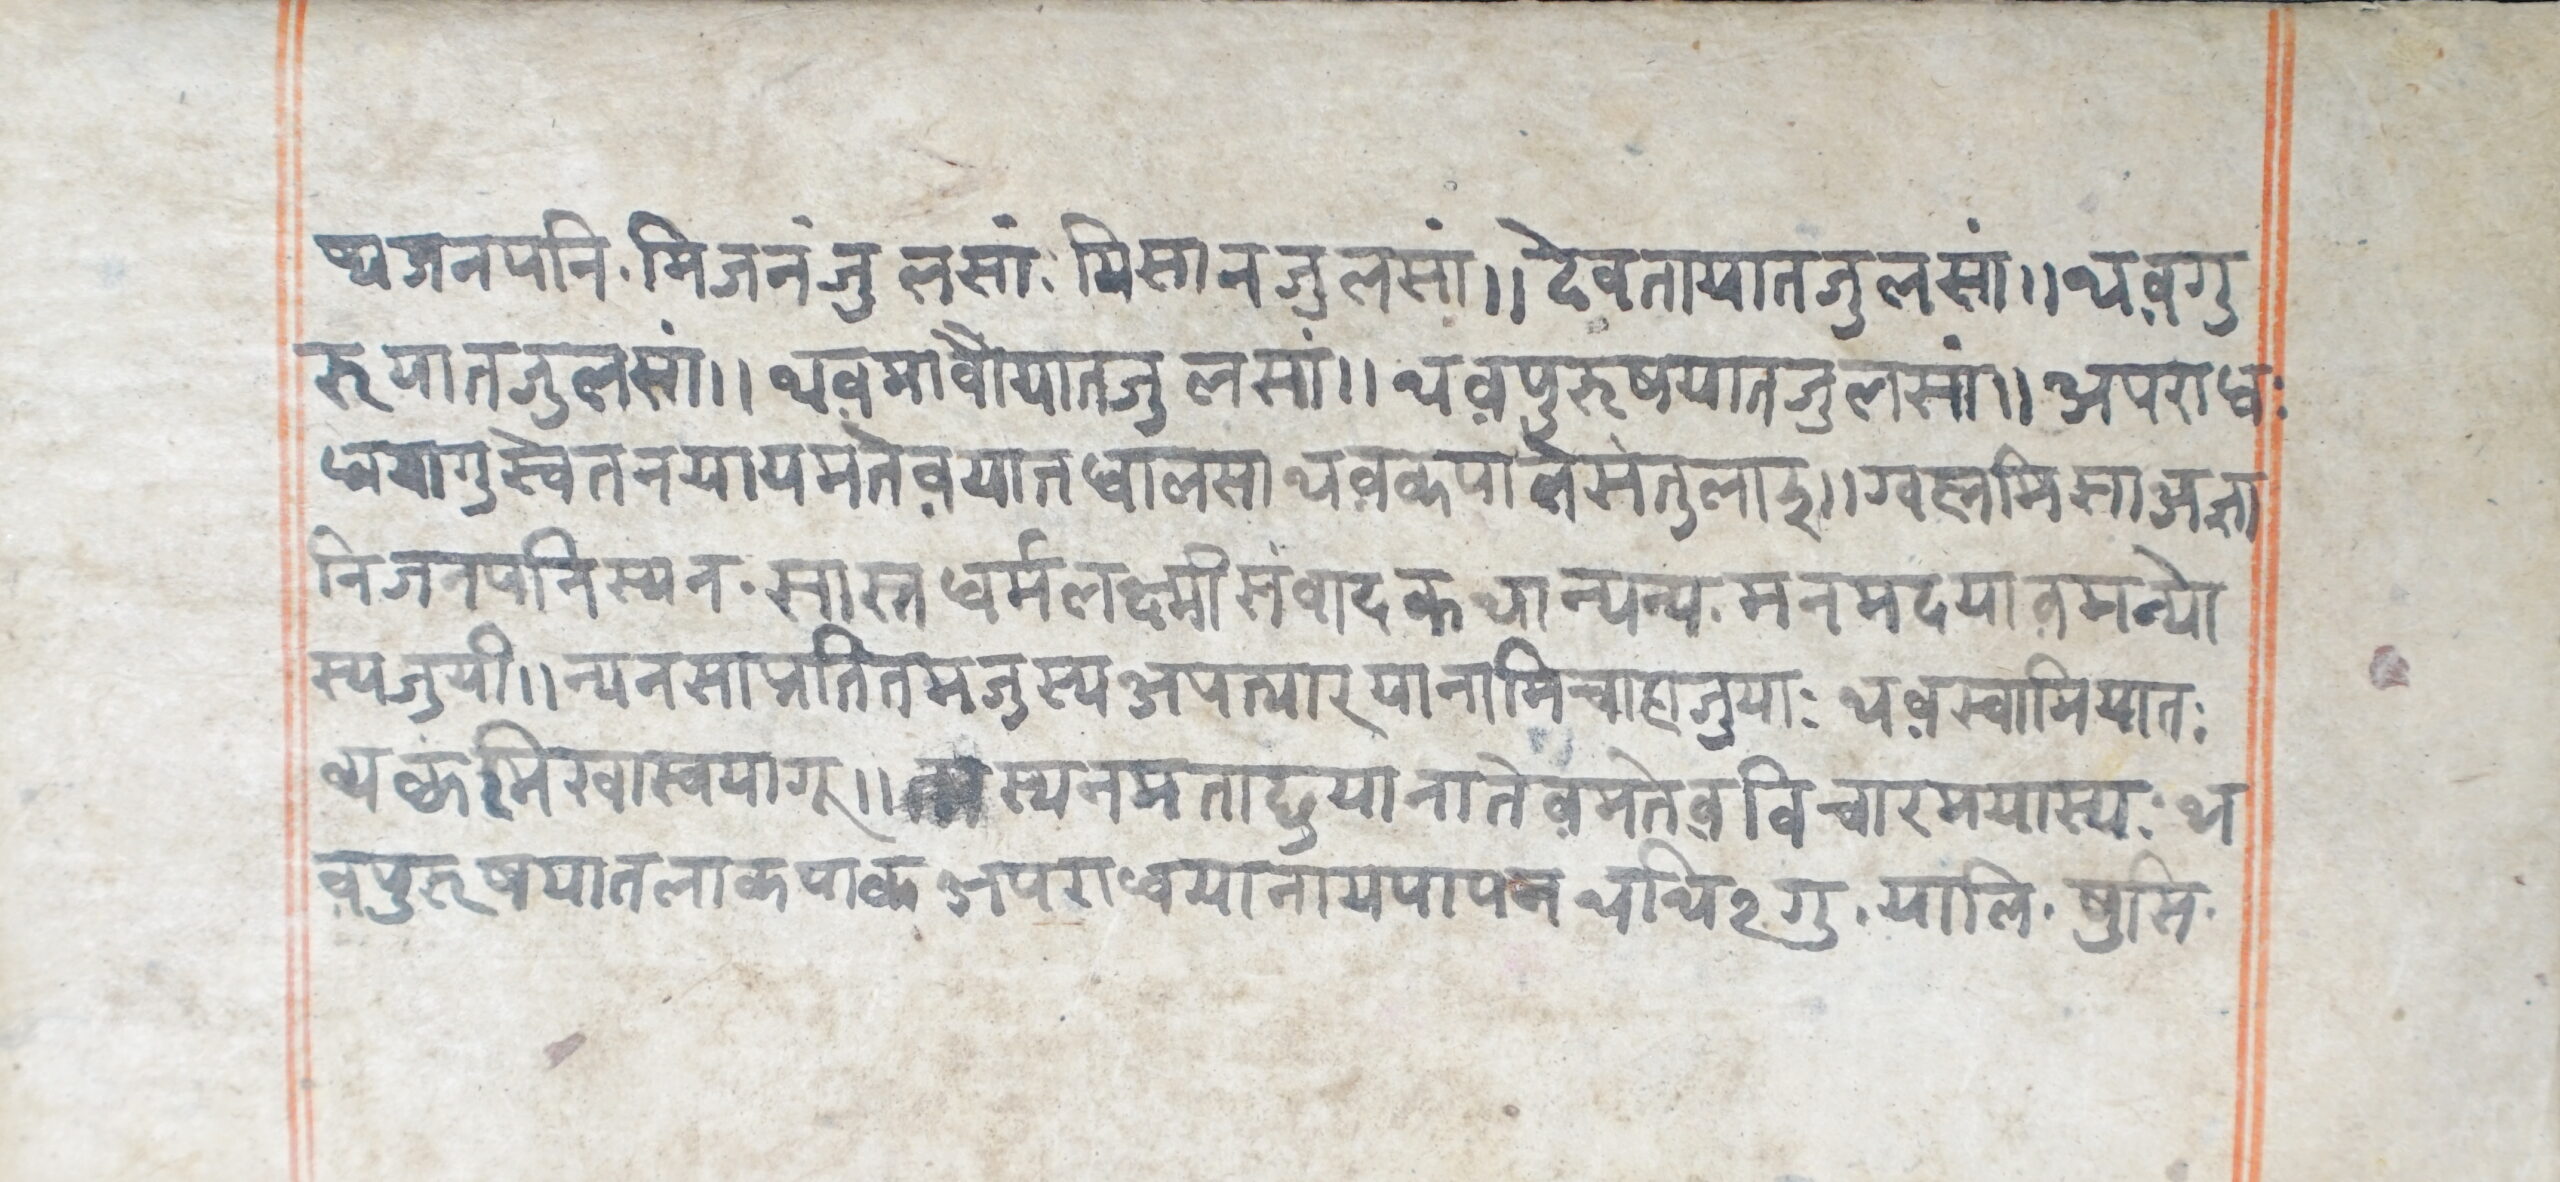 ष्यजनपनि. मिजनंजुलसां: मिसानजुलसां॥ देवतायातजुलसां॥ थव़गु
रूयातजुलसां॥ थव़मावौयातजुलसां॥ थव़पुरूषयातजुलसां॥ अपराध:
धयागुस्वेतनयायमतेव़यातधालसा थव़कपालेसंतुलाइ॥ ग्वह्ममिसाअज्ञा
निजनपनिस्यन. सास्त्र धर्मलक्ष्मीसंवादकथान्यन्य. मनमदयाव़मन्यो
स्यजुयी॥ न्यनसाप्रतितमजुस्य अपत्यारयानामिचाहाजुया: थव़स्वामियात:
व्यकमिखास्वयागू॥ स्यनमताछुयानातेव़मतेव़ विचारमयास्य: थ
व़पुरूषयातलाकपाक अपराधयानायपापन थथिंगु. यालि. षुसि.